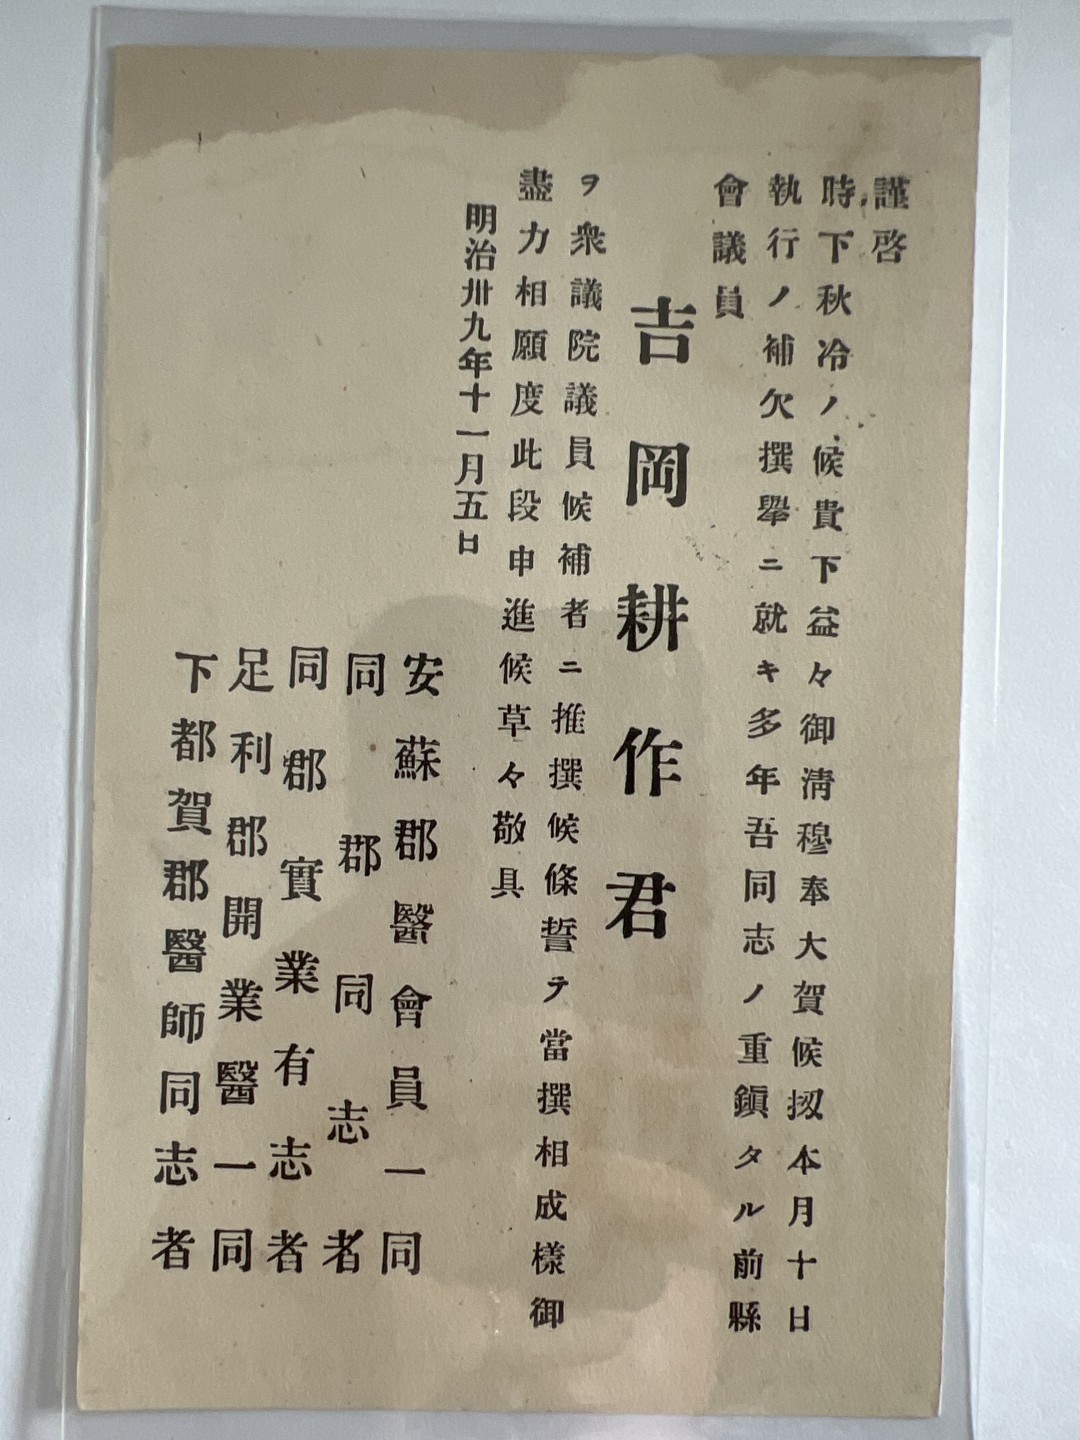 謹啓
時下秋冷ノ候貴下益々御清穆奉大賀候扨本月十日
執行ノ補欠撰舉ニ就キ多年吾同志ノ重鎭タル前縣
會議員
吉岡耕作君
ヲ衆議院議員候補者ニ推撰候條誓テ當撰相成樣御
盡力相願度此段申進候草々敬具
明治卅九年十一月五日
安蘇郡醫會員一同
同郡同志者
同郡實業有志者
足利郡開業醫一同
下都賀郡醫師同志者